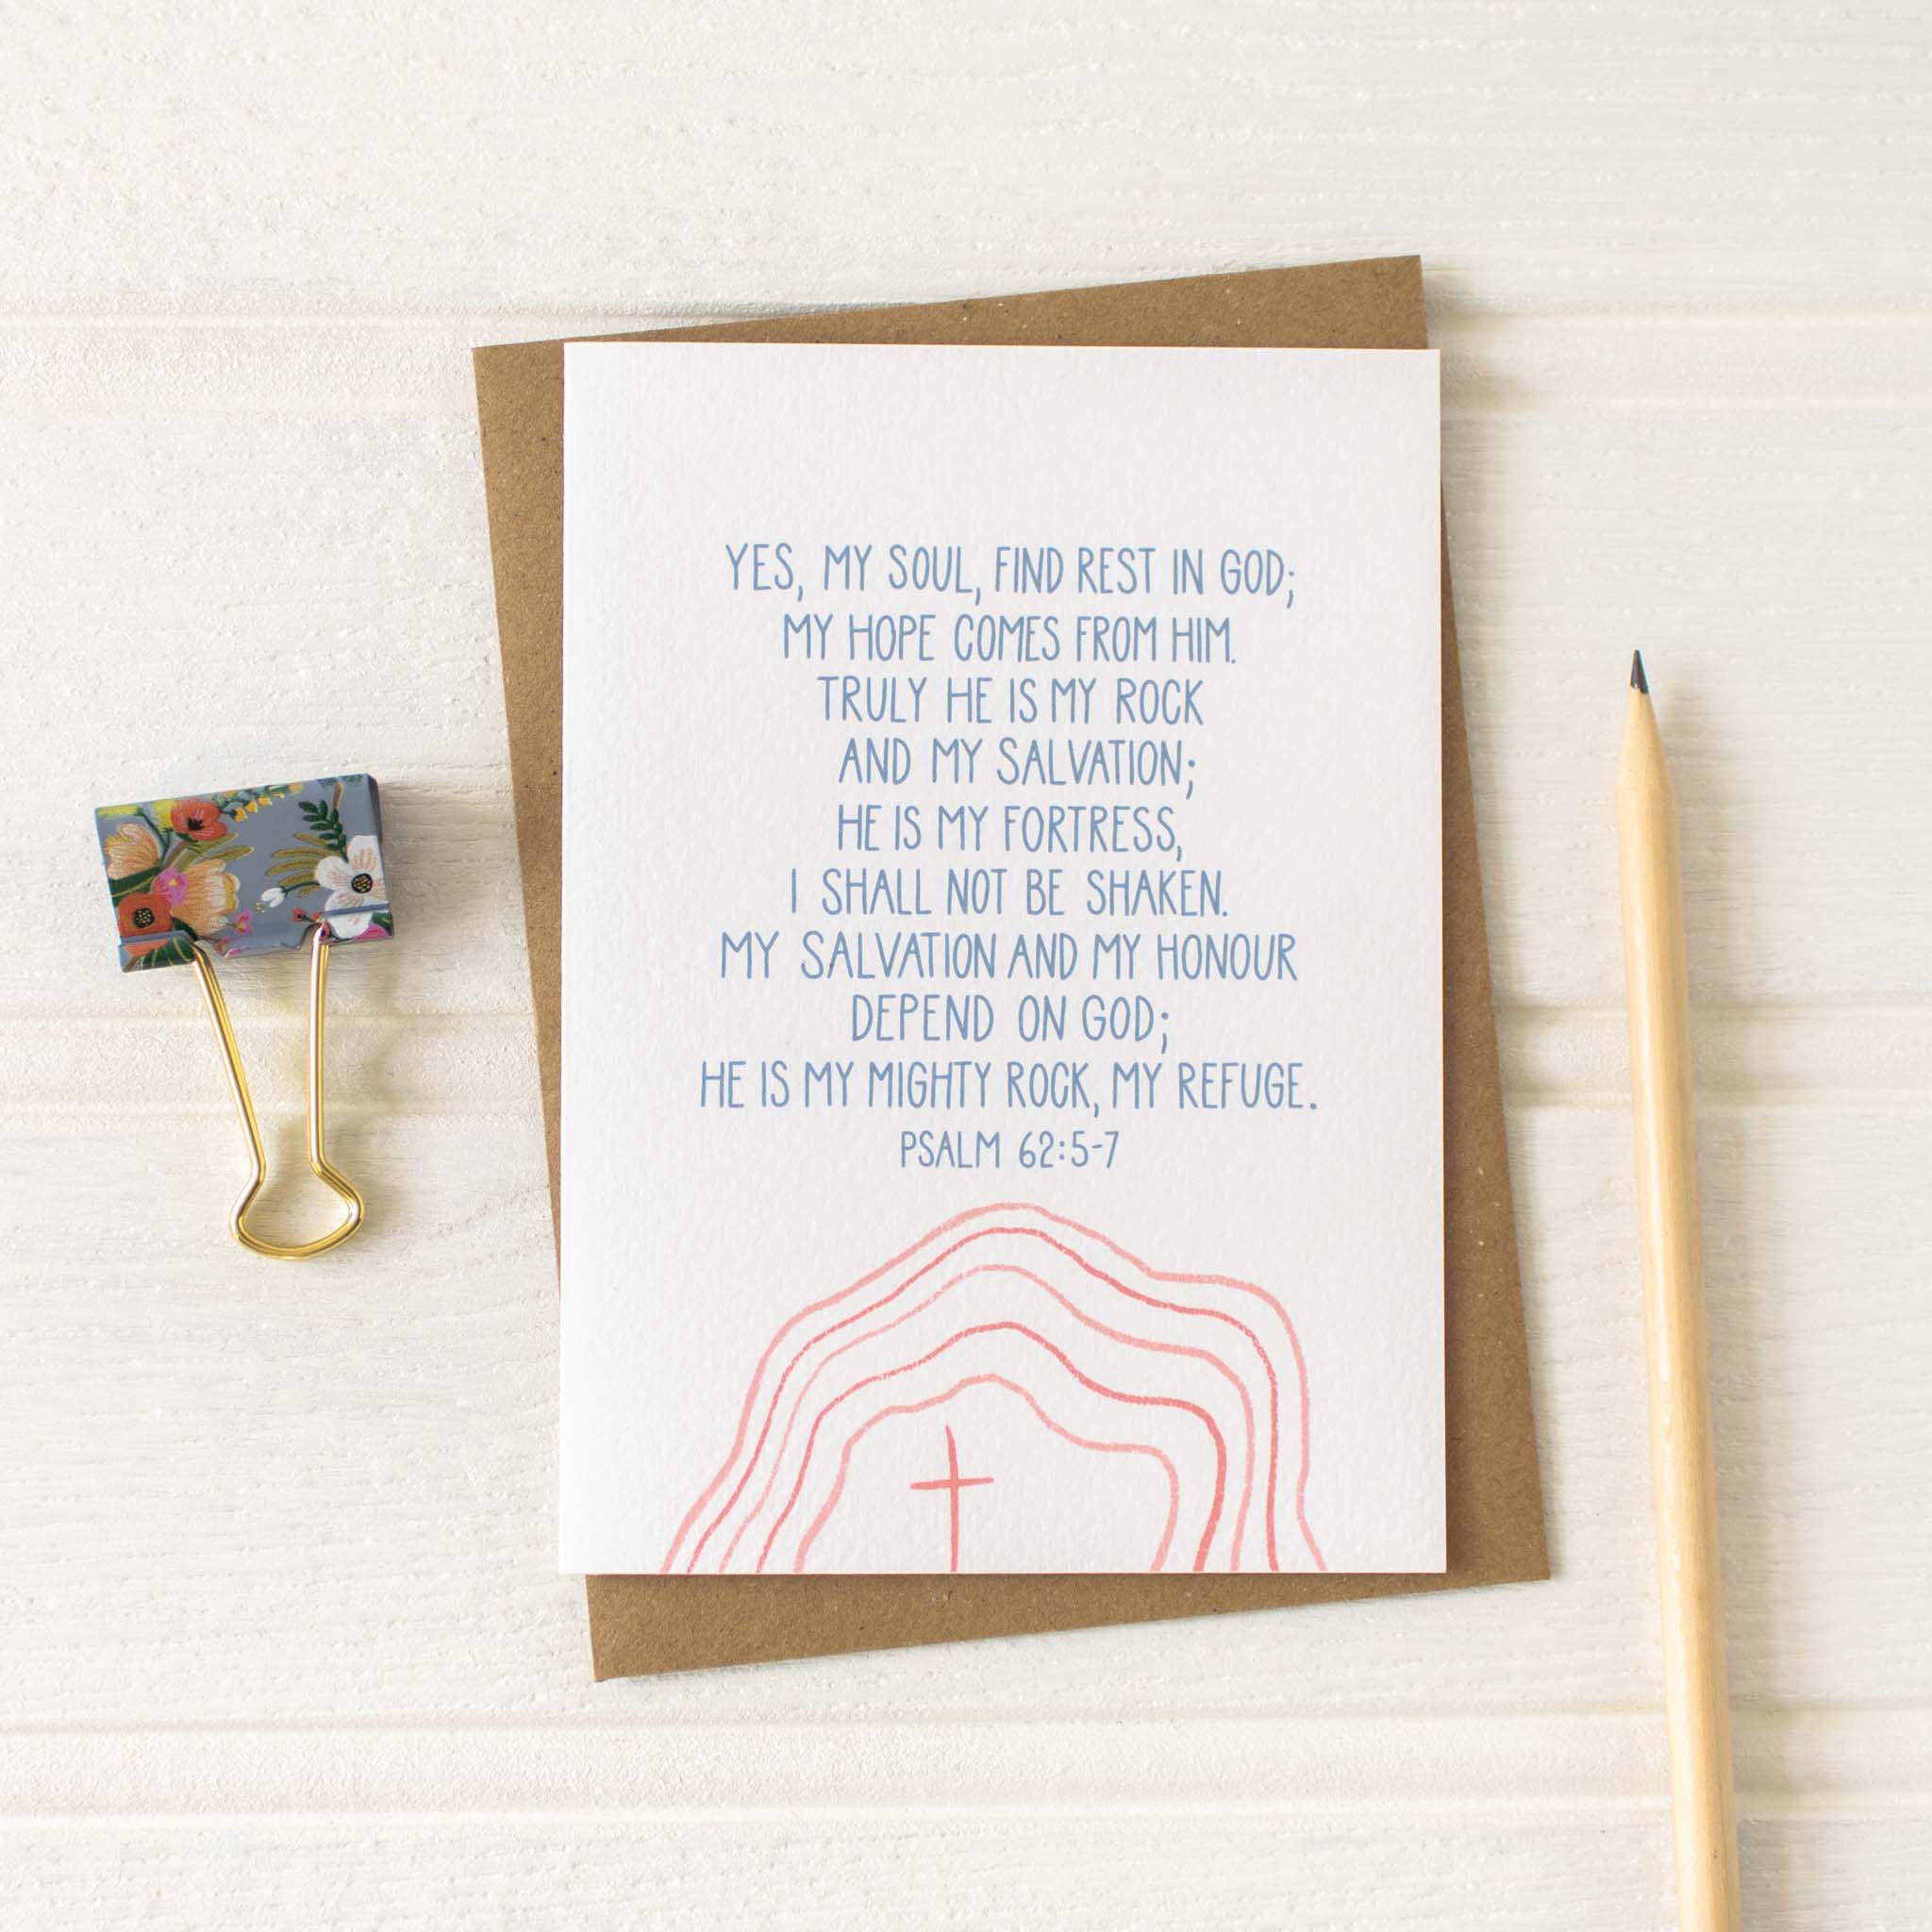 YES, MY SOUL, FIND REST IN GOD;
MY HOPE COMES FROM HIM.
TRULY HE IS MY ROCK
AND MY SALVATION;
HE IS MY FORTRESS,
I SHALL NOT BE SHAKEN.
MY SALVATION AND MY HONOUR
DEPEND ON GOD;
HE IS MY MIGHTY ROCK, MY REFUGE.
PSALM 62:5-7